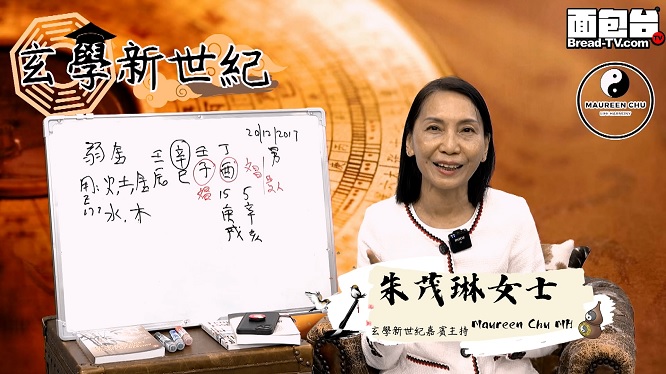 玄學新世紀
面包台
Bread-TV.com
TV
MAUREEN CHU
20/12/2017
男
弱金 壬 辛 壬 丁
辰 巳 子 酉
用: 火土,金
水.木
15 5
庚 辛
戌 亥
朱茂琳女士
玄學新世紀嘉賓主持 Maureen Chu MH